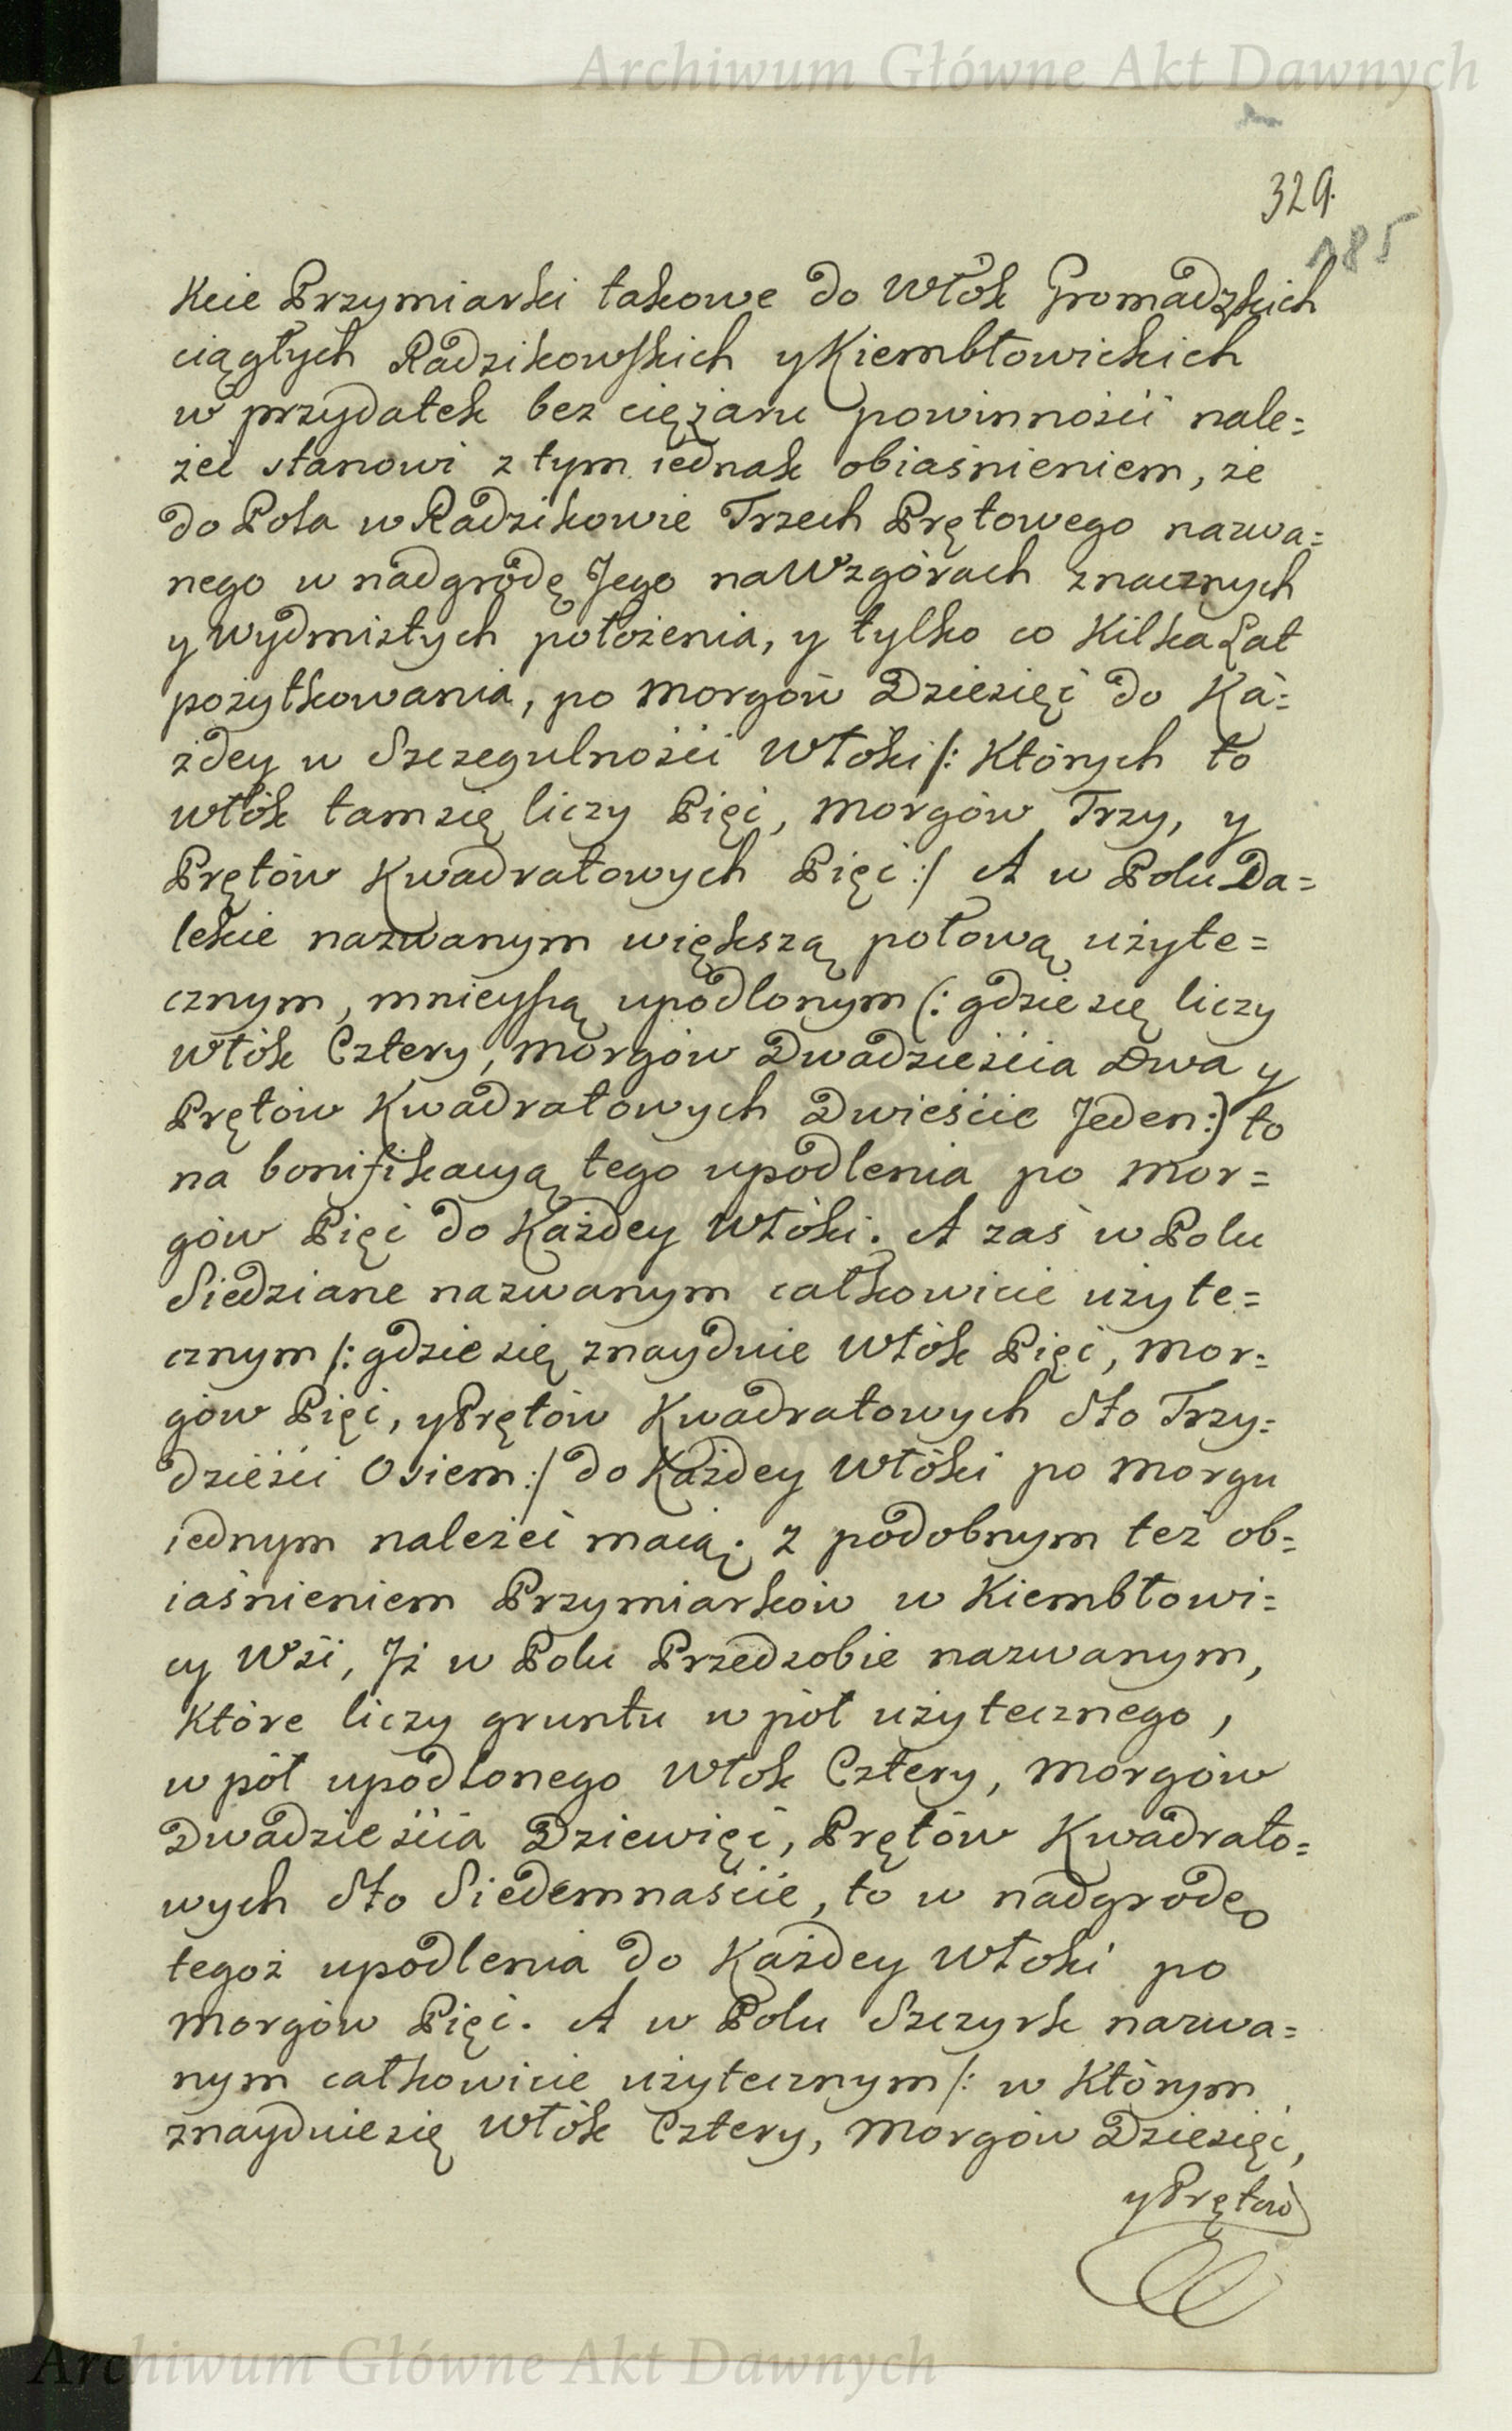 Archiwum Główne Akt Dawnych
329.
185
Kcie Przymiarki takowe do Włók Gromadzkich
ciągłych Radzikowskich y Kiembłowickich
w przydatek bez ciężaru powinnośći nale=
żeć stanowi z tym iednak obiaśnieniem, że
do Pola w Radzikowie Trzech Prętowego nazwa=
nego w nadgrodę Jego na Wzgórach znacznych
y Wydmistych położenia, y tylko co Kilka Lat
pożytkowania, po Morgów Dziesięć do Ka=
żdey w Szczegulnośći Włóki /: Których to
Włók tam się liczy Pięć, Morgów Trzy, y
Prętów Kwadratowych Pięć :/ A w Polu Da=
lekie nazwanym większą połową użyte=
cznym, mnieyszą upodlonym (: gdzie się liczy
Włók Cztery, Morgów Dwadzieśćia Dwa y
Prętów Kwadratowych Dwieśćie Jeden :) to
na bonifikacyą tego upodlenia po Mor=
gów Pięć do Każdey Włóki. A zaś w Polu
Siedziane nazwanym całkowicie użyte=
cznym /: gdzie się znayduie Włók Pięć, Mor=
gów Pięć, y Prętów Kwadratowych Sto Trzy=
dzieśći Osiem :/ do Każdey Włóki po Morgu
iednym należeć maią. z podobnym też ob=
iaśnieniem Przymiarków w Kiembłowi=
cy Wśi, Jż w Polu Przedsobie nazwanym,
Które liczy gruntu w pół użytecznego,
w pół upodlonego Włok Cztery, Morgów
Dwadzieśćia Dziewięć, Prętów Kwadrato=
wych Sto Siedemnaśćie, to w nadgrodę
tegoż upodlenia do Każdey Włoki po
Morgów Pięć. A w Polu Szczyrk nazwa=
nym całkowicie użytecznym /: w Którym
znayduie się Włók Cztery, Morgów Dziesięć,
y Prętów
Archiwum Główne Akt Dawnych